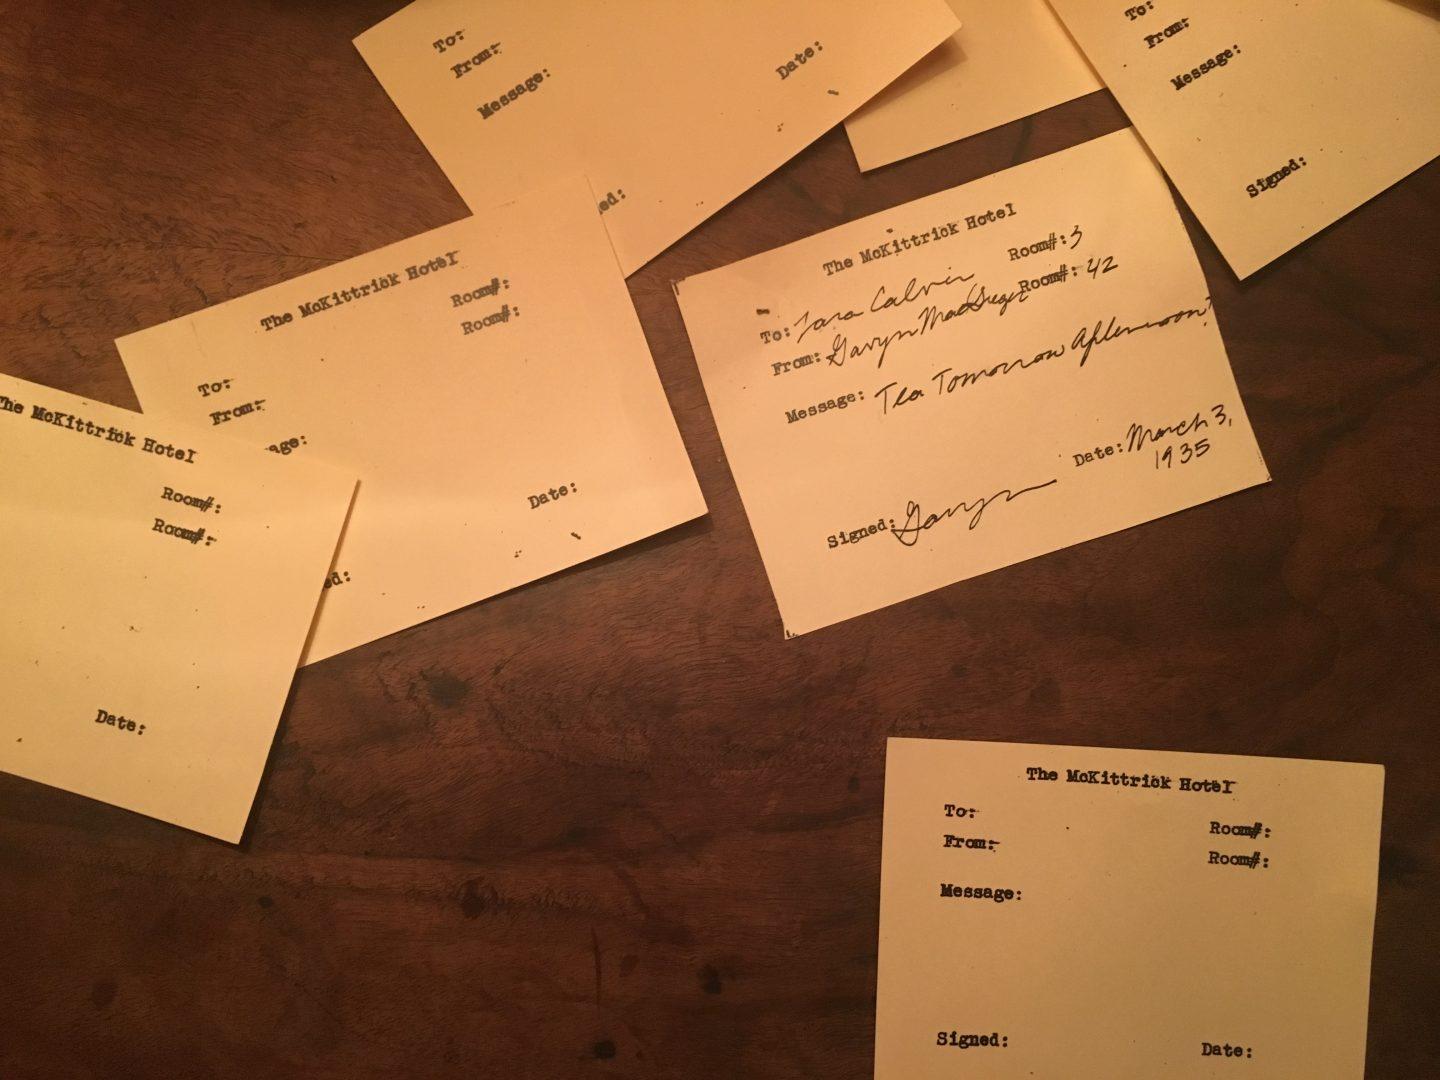 To:
From:
Message:
Date:
ed:
To:
From:
Message:
Signed:
The McKittrick Hotel
Room#:
Room#:
To:
From:
age:
Date:
ed:
The McKittrick Hotel
Room#:
Room#:
Date:
The McKittrick Hotel
To: Tara Calvin Room#: 3
From: Gavyn MacGregor Room#: 42
Message: Tea Tomorrow Afternoon?
Date: March 3,
1935
Signed: Gavyn
The McKittrick Hotel
To:
Room#:
From:
Room#:
Message:
Signed: Date: